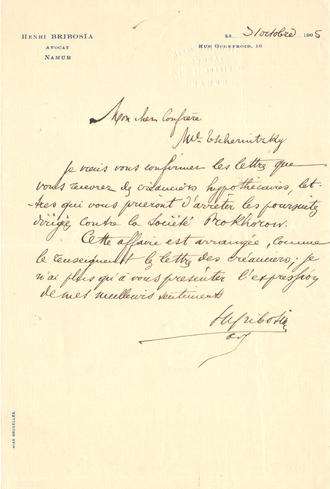 HENRI BRIBOSIA
AVOCAT
NAMUR
LE 31 octobre 1905
RUE GODEFROID, 16
Mon cher Confrère
Me
Je viens vous confirmer les lettres que
vous recevrez des créanciers hypothécaires, let-
tres qui vous prieront d'arrêter les poursuites
dirigées contre la Société Prokhorow.
Cette affaire est arrangée, comme
le renseignent les lettres des créanciers; je
n'ai plus qu'à vous présenter l'expression
de mes meilleurs sentiments
HBribosia